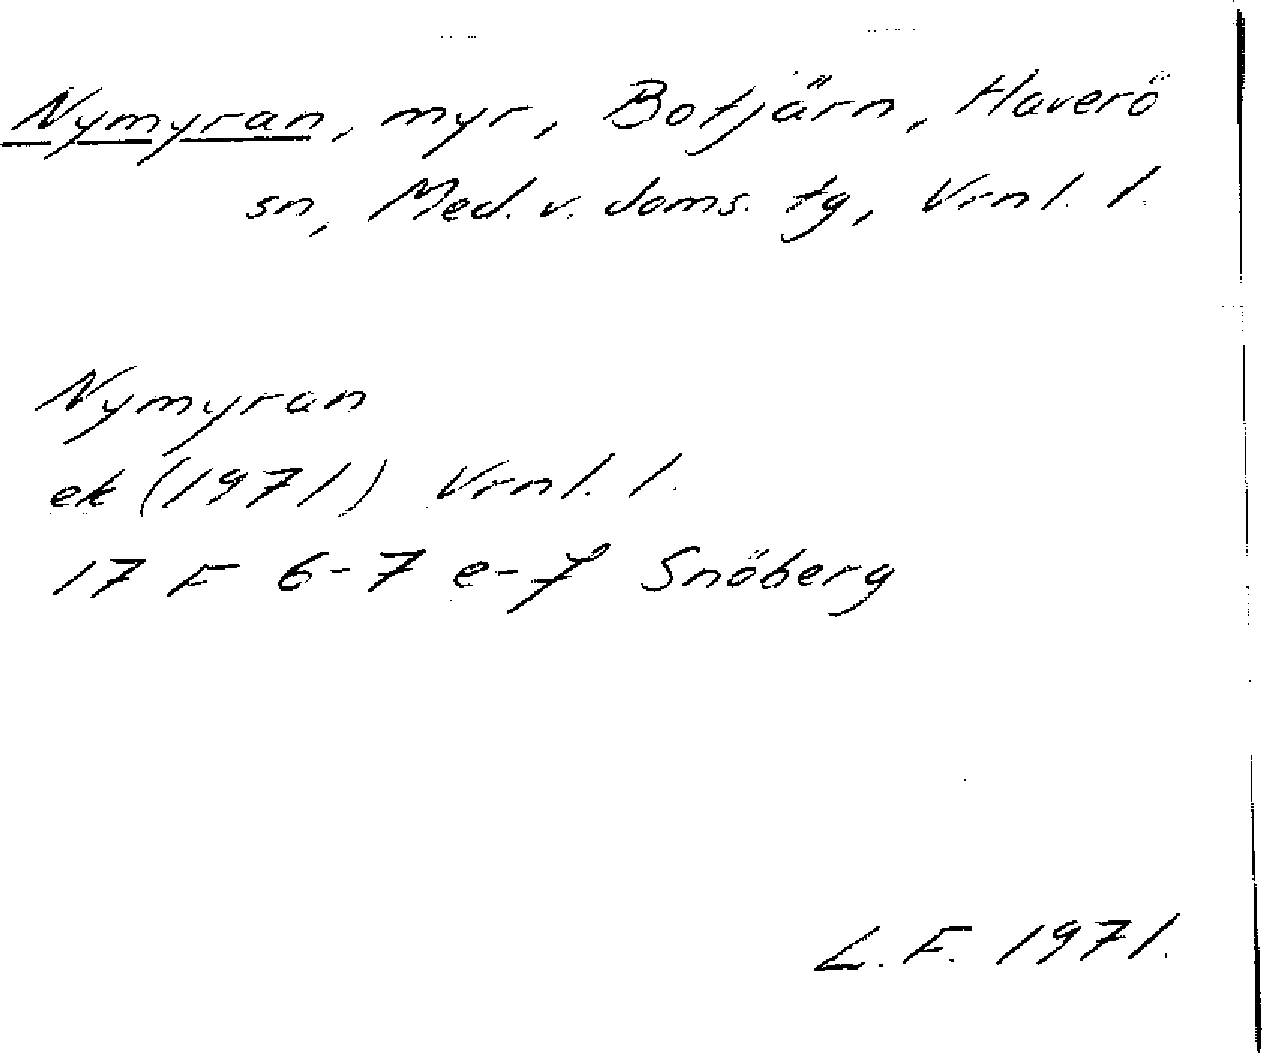 Nymyran, myr, Botjärn, Haverö
sn, Med. v. doms. tg, Vrnl. l.
Nymyran
ek (1971) Vrnl. l.
17 F 6-7 e-f Snöberg
L. F. 1971.